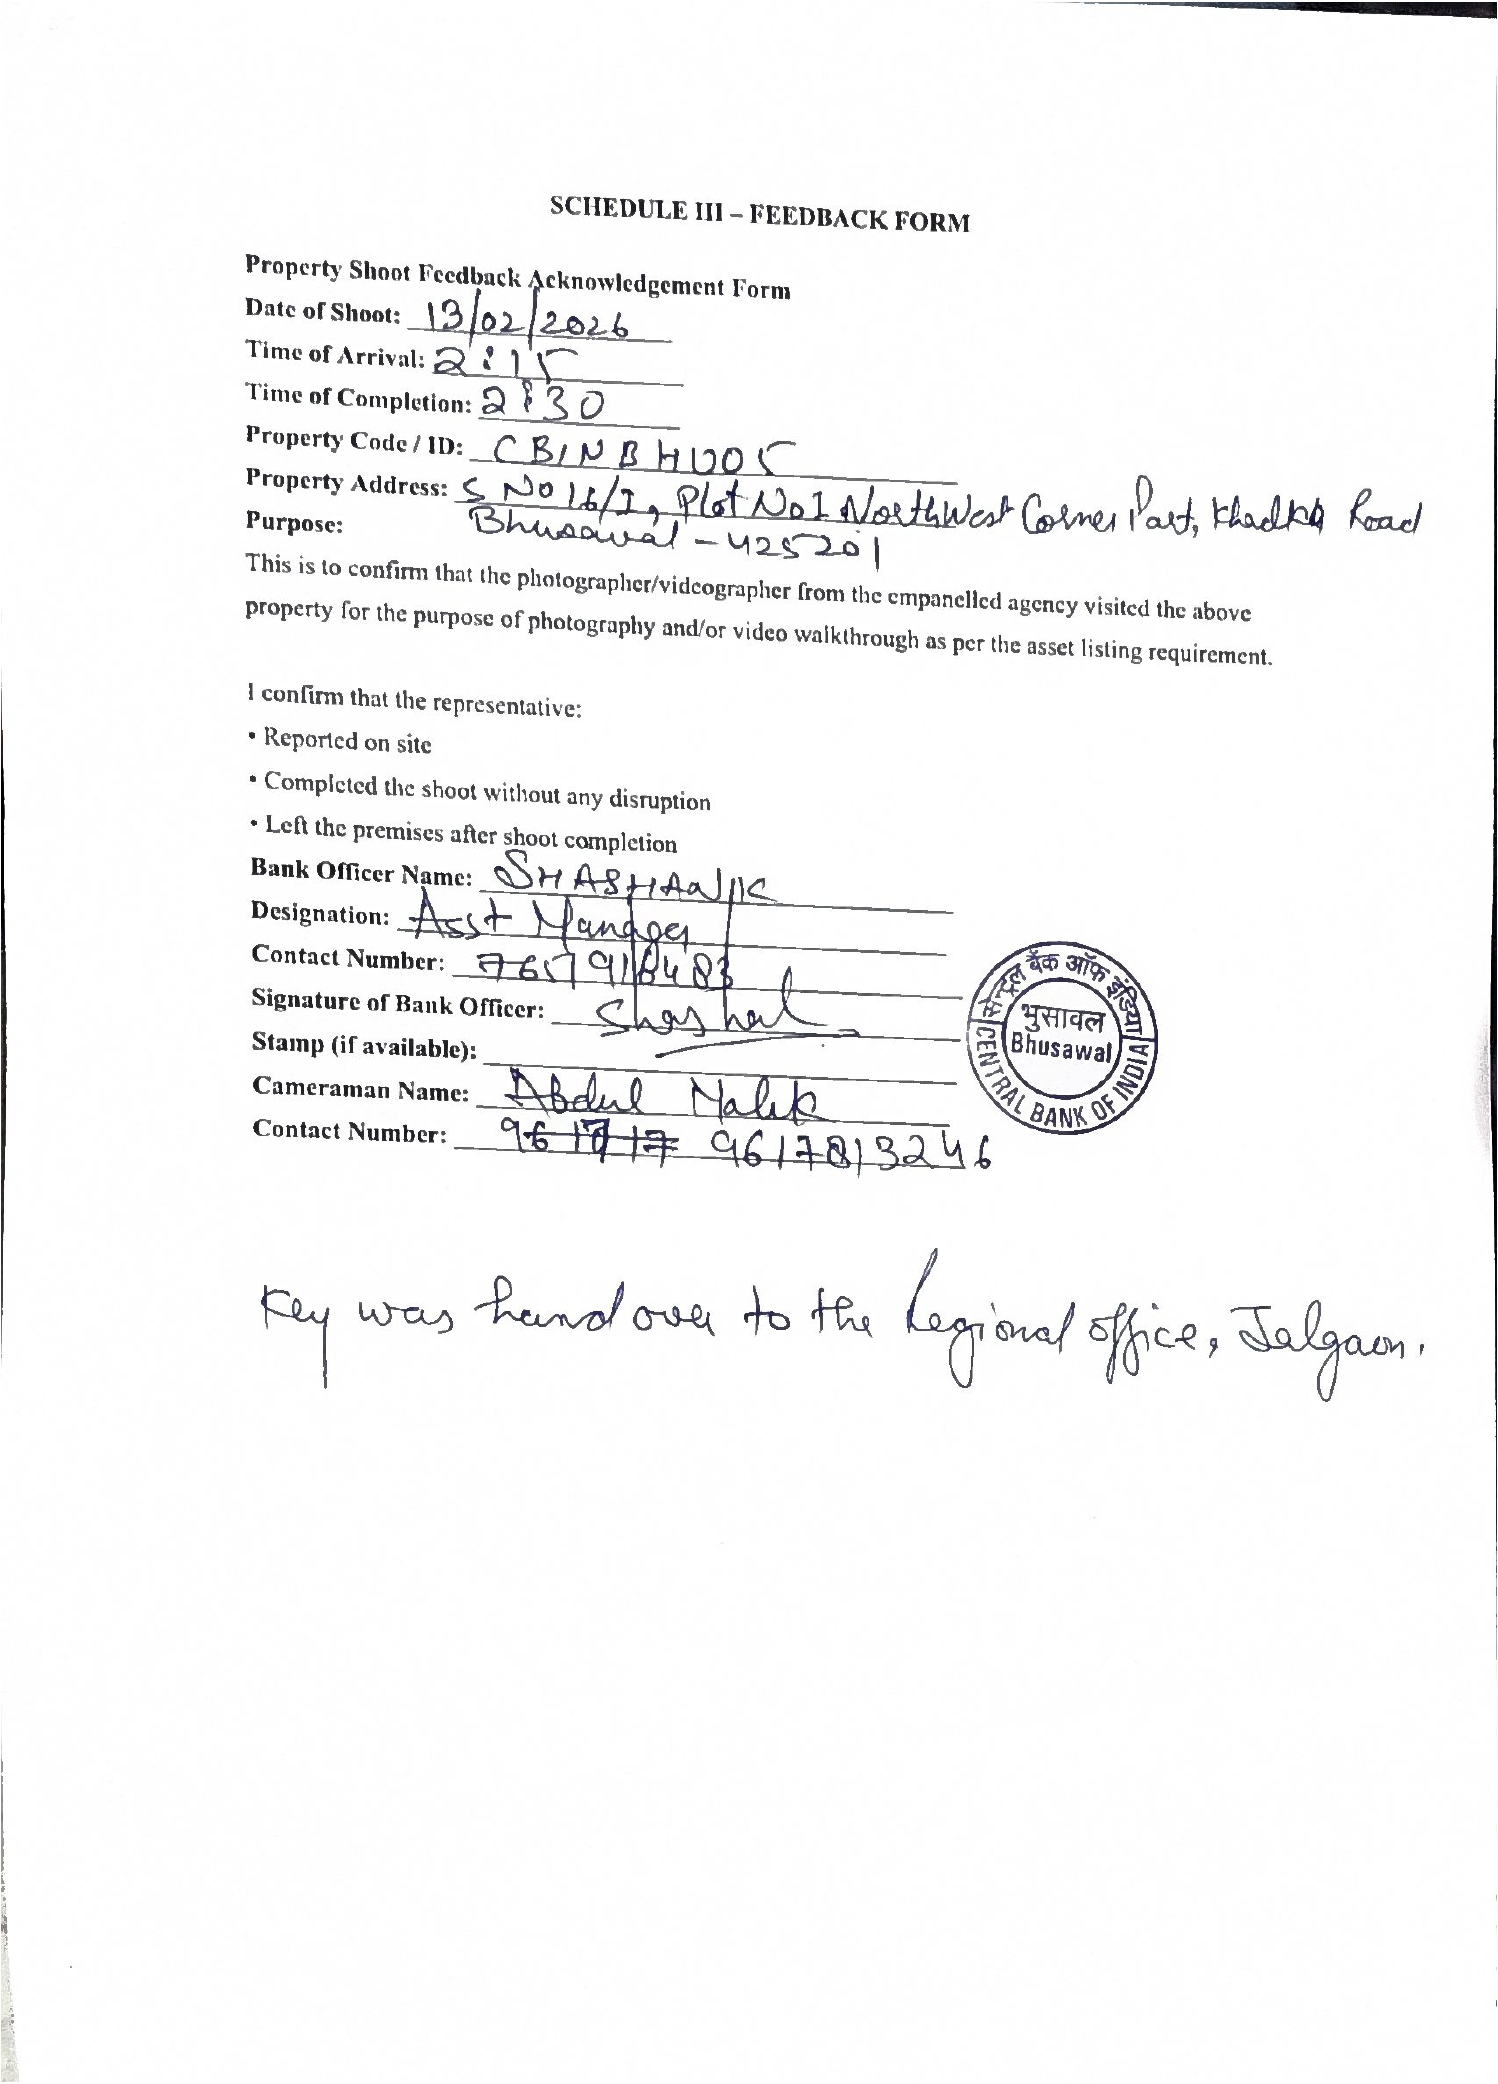 SCHEDULE III – FEEDBACK FORM
Property Shoot Feedback Acknowledgement Form
Date of Shoot: 13/02/2026
Time of Arrival: 2:15
Time of Completion: 2:30
Property Code / ID: CBINBHU05
Property Address: S No 16/1, Plot No 1 NorthWest Corner Part, Khadka Road
Purpose: Bhusawal - 425201
This is to confirm that the photographer/videographer from the empanelled agency visited the above
property for the purpose of photography and/or video walkthrough as per the asset listing requirement.
I confirm that the representative:
• Reported on site
• Completed the shoot without any disruption
• Left the premises after shoot completion
Bank Officer Name: SHASHANK
Designation: Asst Manager
Contact Number: 7657918483
Signature of Bank Officer: Shashank
Stamp (if available):
सेन्ट्रल बैंक ऑफ इंडिया
भुसावल
Bhusawal
CENTRAL BANK OF INDIA
Cameraman Name: Abdul Malik
Contact Number: 9617813246
Key was handover to the Regional office, Jalgaon.